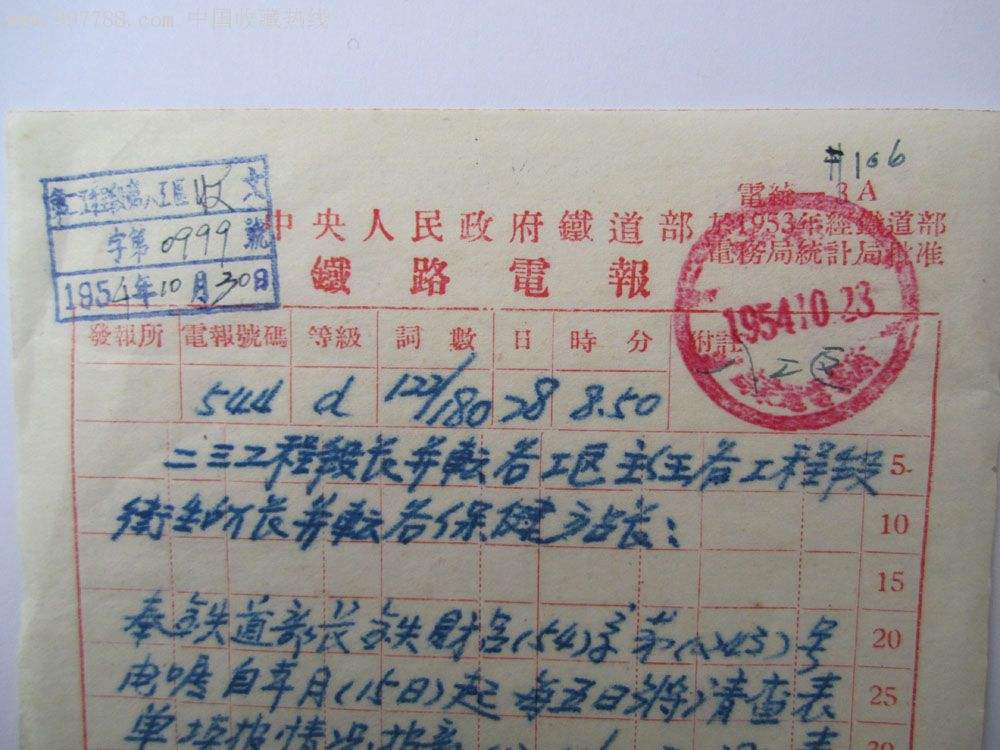 www.997788.com 中国收藏热线
#106
第一工程段第八工區收文
字第0999號
1954年10月30日
電統—3A
中央人民政府鐵道部
於1953年經鐵道部
電務局統計局批准
鐵路電報
1954.10.23
發報所 電報號碼 等級 詞數 日 時分 附註
544 d 122/180 28 8.50
二三工程段長并転各工区主任各工程段 5
衛生所长并転各保健站长： 10
15
奉铁道部长铁财(54)字第(243)号 20
电嘱自本月(15日)起每五日将清查表 25
单填报情况